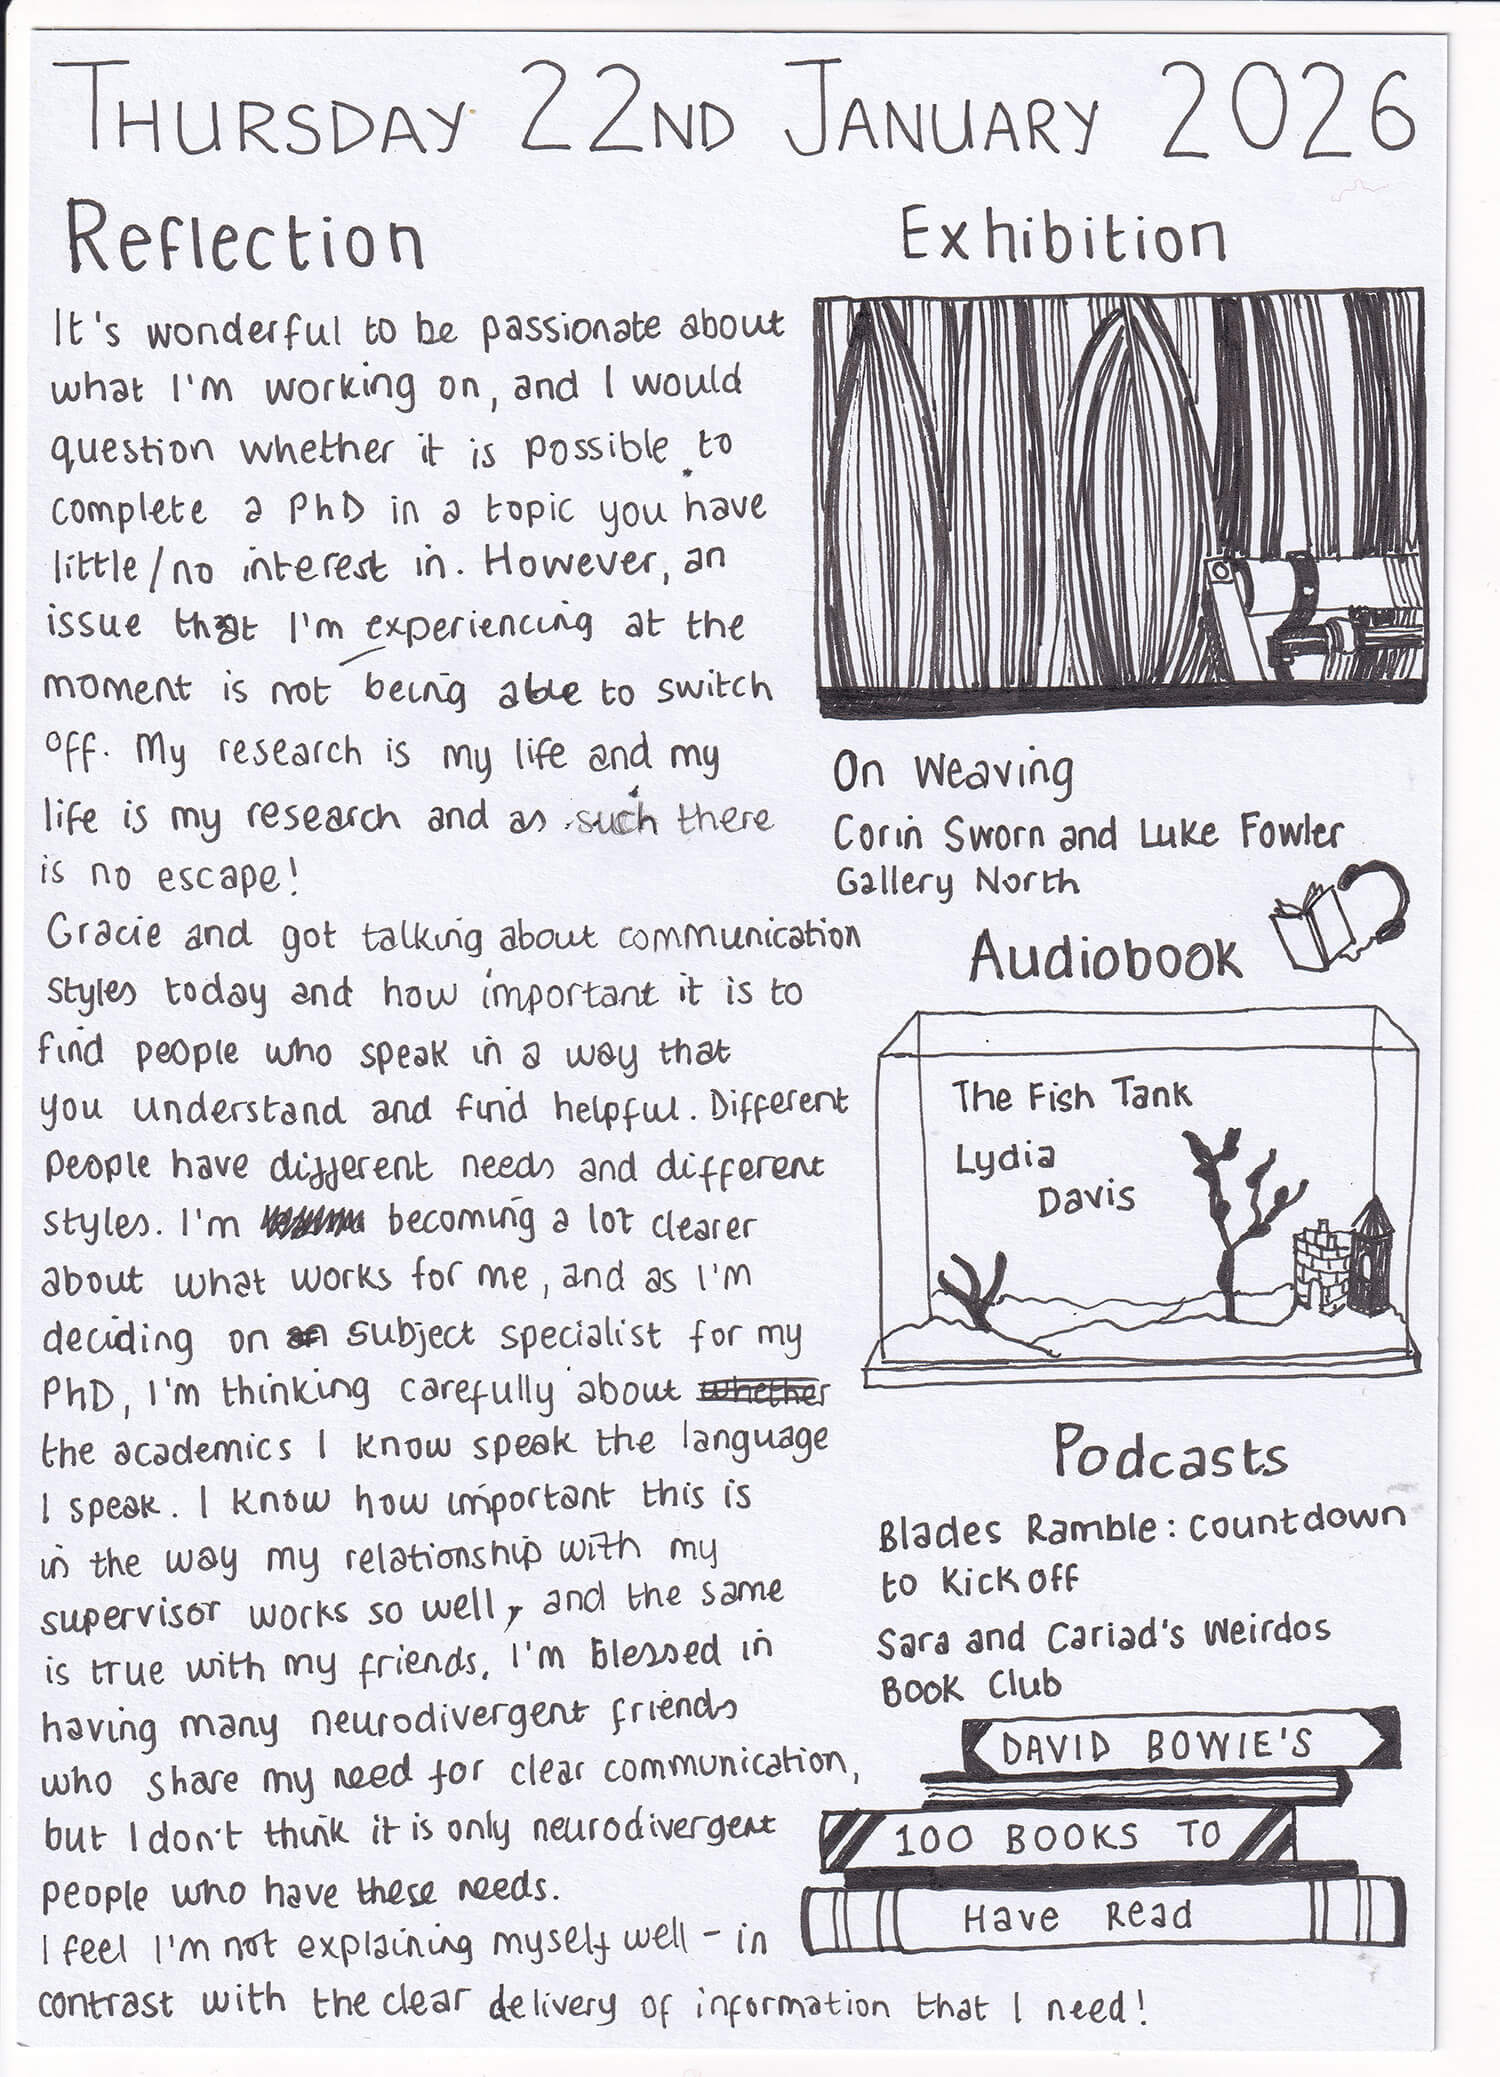 THURSDAY 22ND JANUARY 2026
Reflection
It's wonderful to be passionate about
what I'm working on, and I would
question whether it is possible to
complete a PhD in a topic you have
little/no interest in. However, an
issue that I'm experiencing at the
moment is not being able to switch
off. My research is my life and my
life is my research and as such there
is no escape!
Gracie and got talking about communication
styles today and how important it is to
find people who speak in a way that
you understand and find helpful. Different
people have different needs and different
styles. I'm becoming a lot clearer
about what works for me, and as I'm
deciding on an subject specialist for my
PhD, I'm thinking carefully about whether
the academics I know speak the language
I speak. I know how important this is
in the way my relationship with my
supervisor works so well, and the same
is true with my friends. I'm blessed in
having many neurodivergent friends
who share my need for clear communication,
but I don't think it is only neurodivergent
people who have these needs.
I feel I'm not explaining myself well - in
contrast with the clear delivery of information that I need!
Exhibition
On Weaving
Corin Sworn and Luke Fowler
Gallery North
Audiobook
The Fish Tank
Lydia
Davis
Podcasts
Blades Ramble: Countdown
to Kick off
Sara and Cariad's Weirdos
Book Club
DAVID BOWIE'S
100 BOOKS TO
Have Read